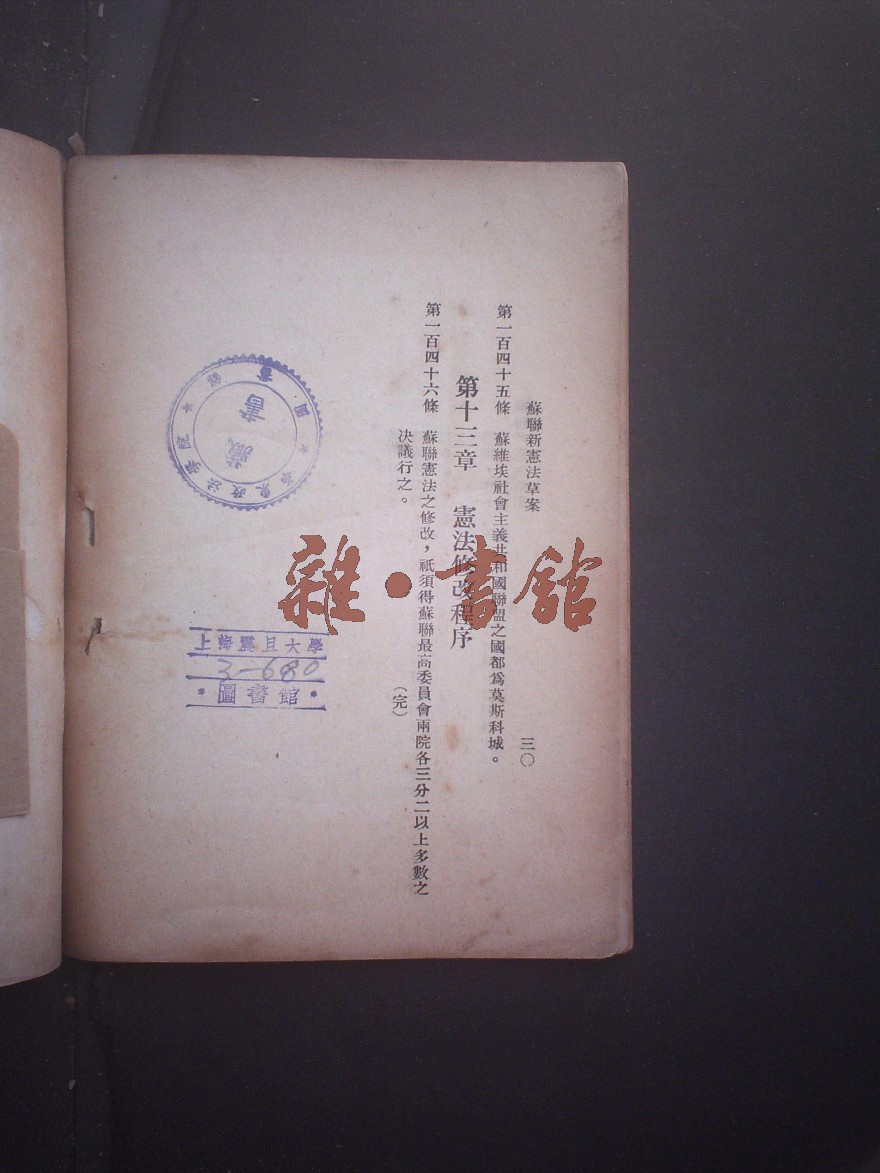 蘇聯新憲法草案
三〇
第一百四十五條　蘇維埃社會主義共和國聯盟之國都爲莫斯科城。
第十三章　憲法修改程序
第一百四十六條　蘇聯憲法之修改，祇須得蘇聯最高委員會兩院各三分二以上多數之
決議行之。
（完）
華東政法學院
圖書館
藏書
上海震旦大學
3-680
圖書館
雜·書館